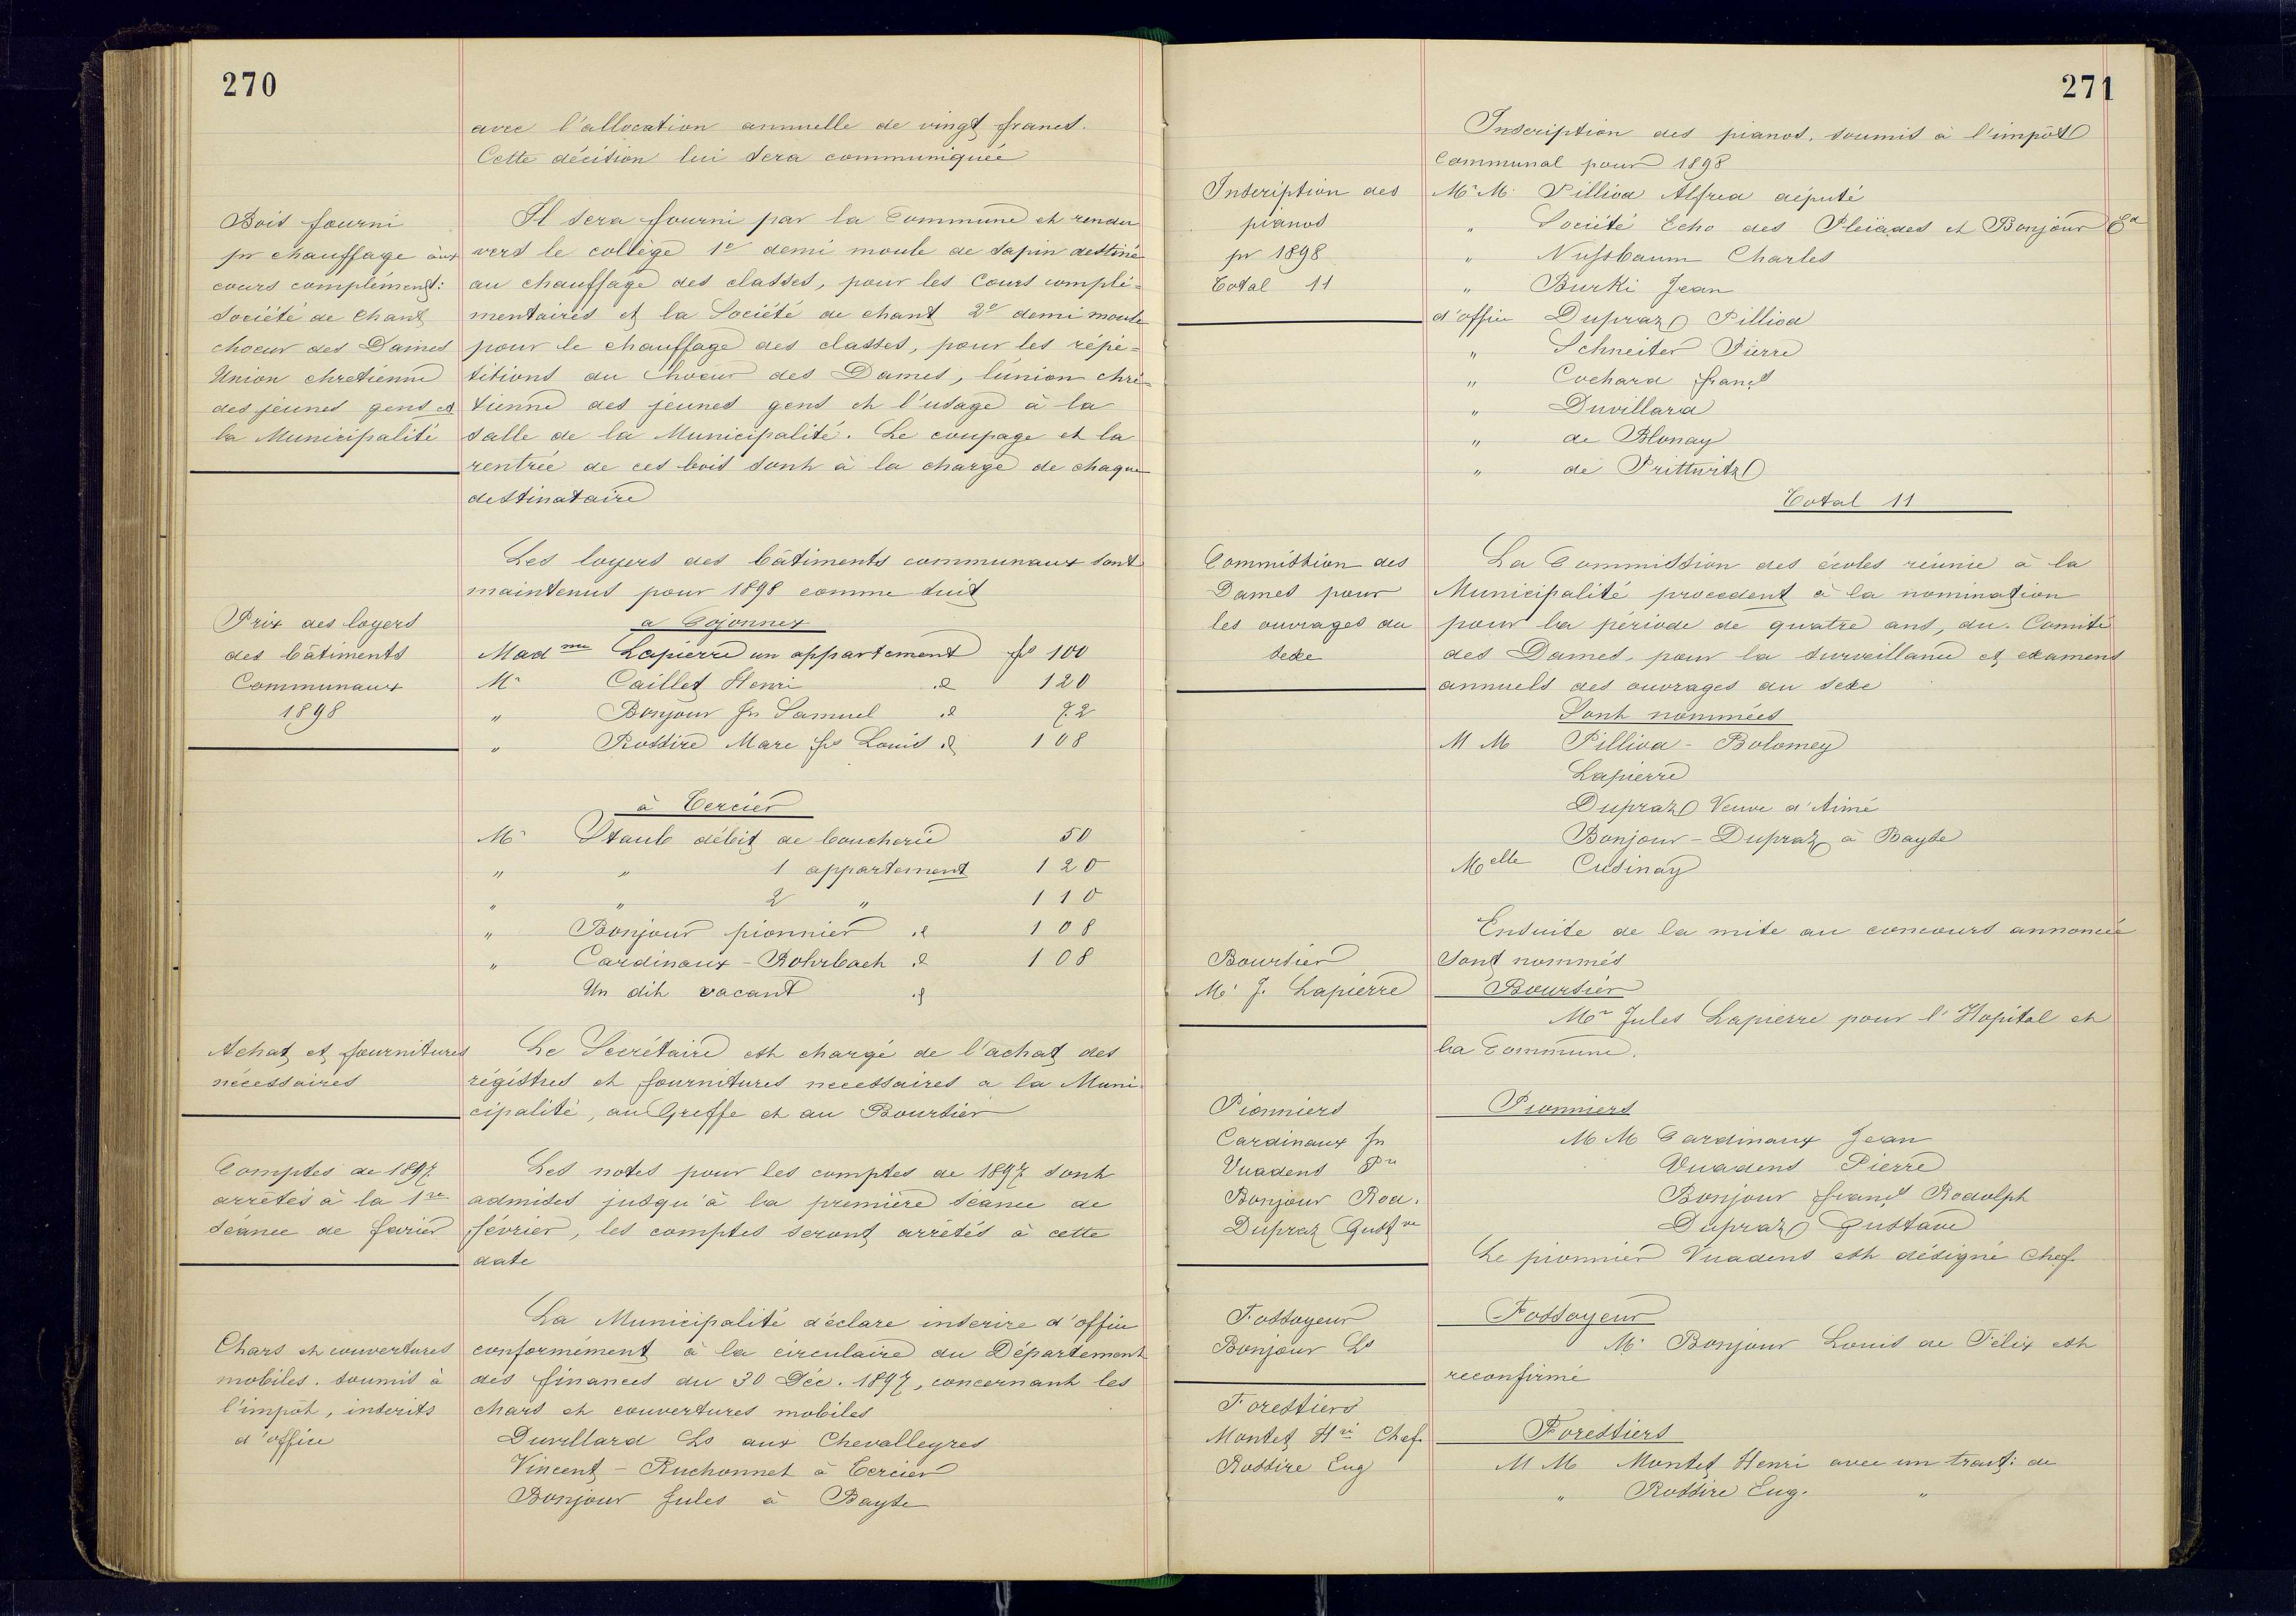 270
avec l'allocation annuelle de vingt francs.
Cette décision lui sera communiquée
Bois fourni
pr chauffage aux
cours complément:
Société de Chant
choeur des Dames
Union chretienne
des jeunes gens et
la Municipalité
Il sera fourni par la Commune et rendu
vers le collège 1° demi moule de sapin destiné
au chauffage des classes, pour les Cours complé=
mentaires et la Société de chant 2° demi moule
pour le chauffage des classes, pour les répé=
titions du Choeur des Dames, l'union chré=
tienne des jeunes gens et l'usage à la
salle de la Municipalité. Le coupage et la
rentrée de ces bois sont à la charge de chaque
destinataire
Prix des loyers
des bâtiments
Communaux
1898
Les loyers des bâtiments communaux sont
maintenus pour 1898 comme suit
a Cojonnex
Mad me Lapierre un appartement frs 100
Mr Caillet Henri id 120
" Bonjour fs Samuel id 72
" Rossire Marc fs Louis id 108
à Tercier
Mr Staub débit de boucherie 50
" " 1 appartement 120
" " 2 " 110
" Bonjour pionnier id 108
" Cardinaux - Rohrbach id 108
Un dit vacant id
Achat et fournitures
nécessaires
Le Secrétaire est chargé de l'achat des
régistres et fournitures necessaires a la Muni=
cipalité, au Greffe et au Boursier
Comptes de 1897
arrêtés à la 1re
séance de fevrier
Les notes pour les comptes de 1897 sont
admises jusqu'à la première séance de
février, les comptes seront arrêtés à cette
date
Chars et couvertures
mobiles. soumis à
l'impôt, inscrits
d'office
La Municipalité déclare inscrire d'office
conformément à la circulaire du Département
des finances du 30 Déc. 1897, concernant les
chars et couvertures mobiles
Duvillard Ls aux Chevalleyres
Vincent - Ruchonnet à Tercier
Bonjour Jules à Bayse
271
Inscription des
pianos
pr 1898
Total 11
Inscription des pianos, soumis à l'impôt
Communal pour 1898
Mr M. Pilliod Alfred député
" Société Echo des Pleïades et Bonjour Ed
" Nussbaum Charles
" Burki Jean
d'office Dupraz Pilliod
" Schneiter Pierre
" Cochard franç
" Duvillard
" de Blonay
" de Prittwitz
Total 11
Commission des
Dames pour
les ouvrages du
sexe
La Commission des écoles réunie à la
Municipalité procedent à la nomination
pour la période de quatre ans, du. Comité
des Dames, pour la surveillance et examens
annuels des ouvrages du sexe
Sont nommées
M M Pilliod - Bolomey
Lapierre
Dupraz Veuve d'Aimé
Bonjour - Dupraz à Bayse
Melle Cusinay
Boursier
Mr J. Lapierre
Ensuite de la mise au concours annoncée
Sont nommés
Boursier
Mr Jules Lapierre pour l'Hopital et
la Commune.
Pionniers
Cardinaux Jn
Vuadens Pre
Bonjour Rod.
Dupraz Gustve
Pionniers
M M Cardinaux Jean
Vuadens Pierre
Bonjour franç Rodolph
Dupraz Gustave
Le pionnier Vuadens est désigné Chef
Fossoyeur
Bonjour Ls
Fossoyeur
Mr Bonjour Louis de Félix est
reconfirmé
Forestiers
Montet Hri Chef
Rossire Eug
Forestiers
M M Montet Henri avec un trait: de
" Rossire Eug. "